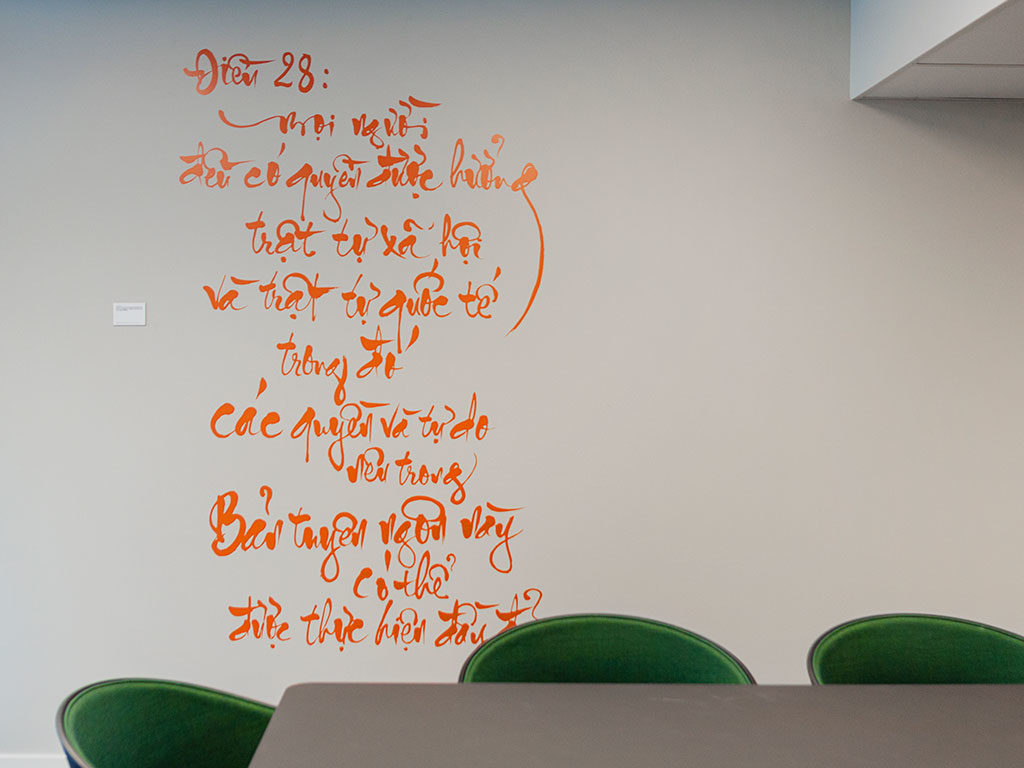 Điều 28:
mọi người
đều có quyền được hưởng
trật tự xã hội
và trật tự quốc tế
trong đó
các quyền và tự do
nêu trong
Bản tuyên ngôn này
có thể
được thực hiện đầy